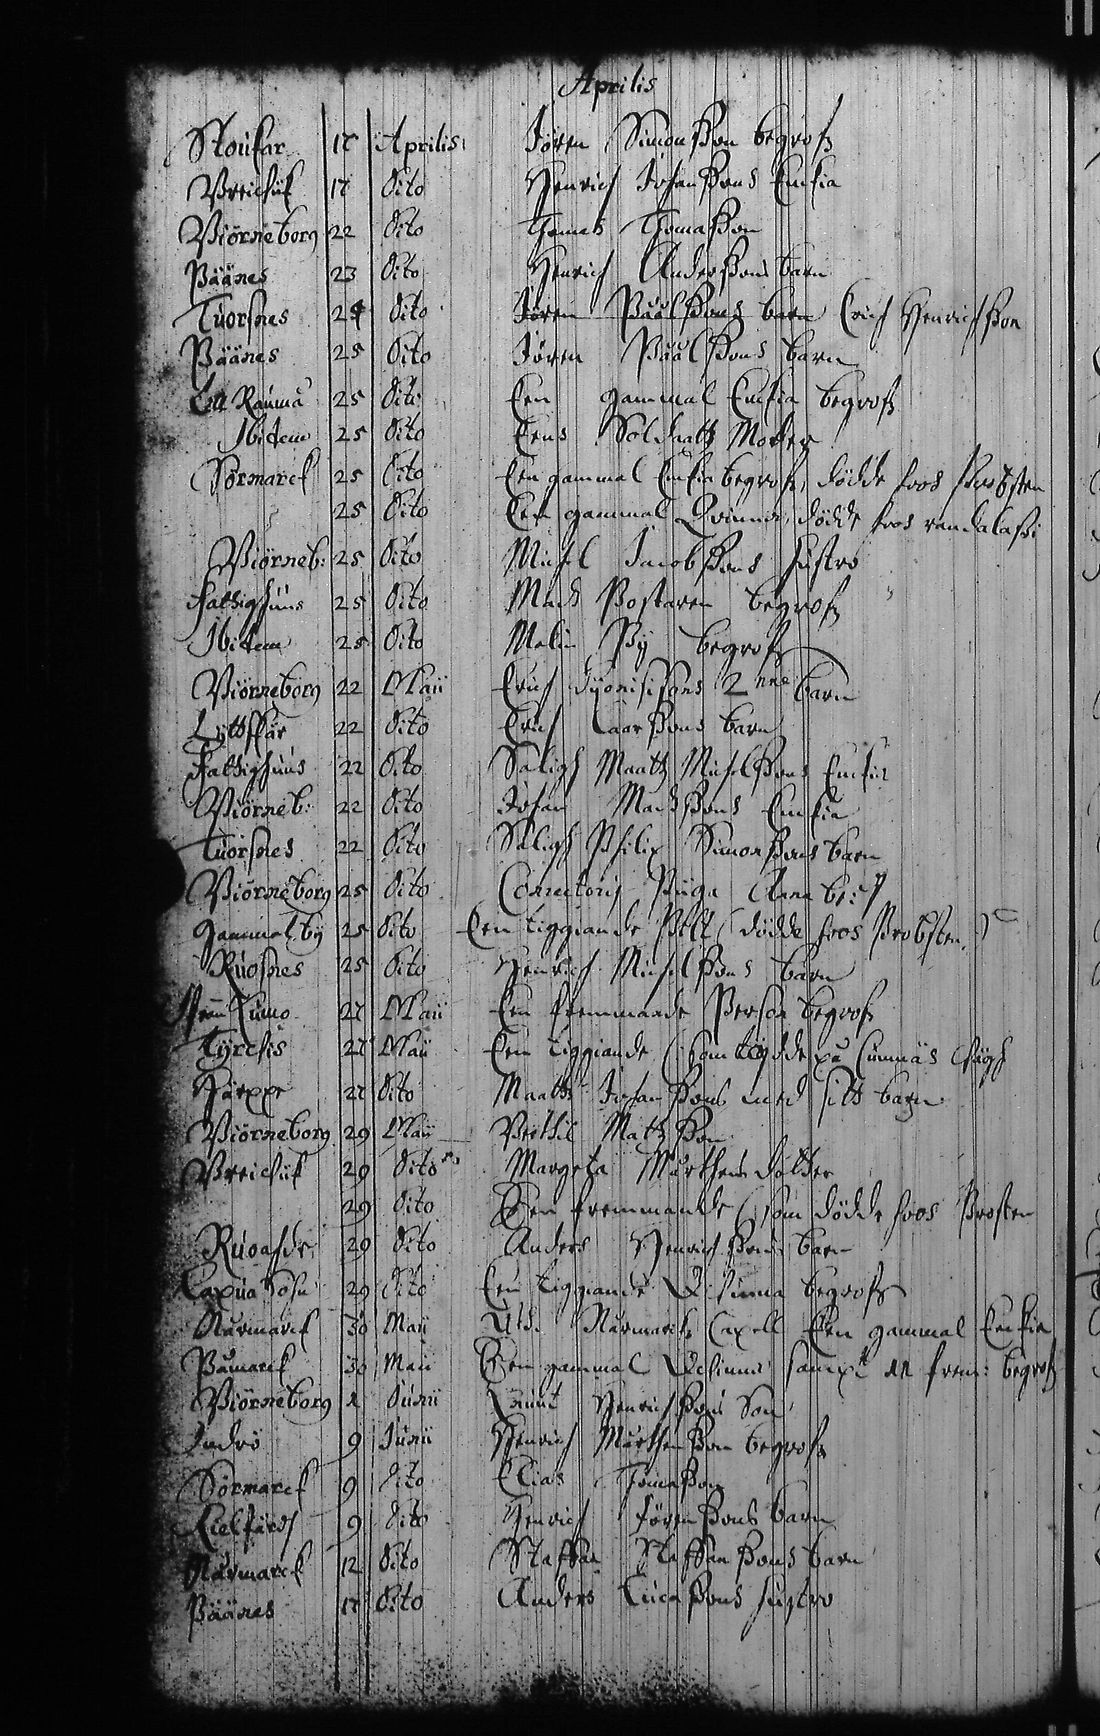 Aprilis
17 Aprilis Jören Simonsson begrofs
Vreichük 17 Dito Henrich Johanssons Enkia
Viörneborg 22 Dito Thomas Thomasson
Päänes 23 Dito Henrich Anderssons barn
Tuorsnes 24 Dito Jören Påålssons barn Erich Henrichsson
Päänes 25 Dito Jören Påålssons barn
Rauma 25 Dito Een gammal Enkia begrofs
Ibidem 25 Dito Eens Soldaatz Moder
Sörmarck 25 Dito Een gammal Enkia begrofs, dödde hoos Probsten
25 Dito Een gammal Qvinna, dödde hoos
Viörneb: 25 Dito Michel Jacobssons hustro
Fattighuus 25 Dito Mads Postaren begrofs
Ibidem 25 Dito Malin begrofs
Viörneborg 22 Maii Erich Dyonisissons 2nne barn
Lyttskär 22 Dito Erich Laarssons barn
Fattighuus 22 Dito Saligh Maatz Michelssons Enkia
Viörneb: 22 Dito Johan Madssons Enkia
Tuorsnes 22 Dito Saligh Philip Simonssons barn
Viörneborg 25 Dito Conrectoris Piiga Anna
Gammelby 25 Dito Een tiggiande (dödde hoos Probsten)
Ruosnes 25 Dito Henrich Michelssons barn
Cumo 27 Maii Een fremmande Person begrofs
27 Maii Een tiggiande (som dödde på Cumnäs
27 Dito Maatz Johanssons med sitt barn
Viörneborg 29 Maii Berthil Matzson
Vreichük 29 Dito Margeta Mårthensdotter
29 Dito Een fremmande (som dödde hoos Prosten
29 Dito Anders Henrichssons barn
29 Dito Een tiggiande Qvinna begrofs
Närmarck 30 Maii Uthi Närmarck Capell Een gammal Enkia
Påmarck 30 Maii Een gammal Qvinna sampt en frem: begrofs
Viörneborg 1 Junii Knut Henrichssons Son
Inderö 9 Junii Henrich Mårthensson begrofs
Sörmarck 9 Dito Elias Tomasson
Kielfärd 9 Dito Henrich Jörenssons barn
Närmarck 12 Dito Staffan Staffanssons barn
Päänes 17 Dito Anders Lucassons hustro